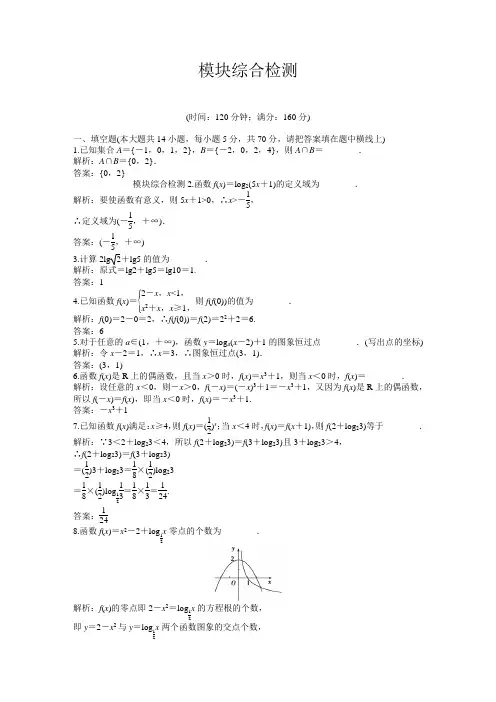 模块综合检测
(时间：120分钟；满分：160分)
一、填空题(本大题共14小题，每小题5分，共70分，请把答案填在题中横线上)
1.已知集合A＝{－1，0，1，2}，B＝{－2，0，2，4}，则A∩B＝________.
解析：A∩B＝{0，2}.
答案：{0，2}
模块综合检测2.函数f(x)＝log₂(5x＋1)的定义域为________.
解析：要使函数有意义，则5x＋1>0，∴x>－1/5，
∴定义域为(－1/5，＋∞).
答案：(－1/5，＋∞)
3.计算2lg√2＋lg5的值为________.
解析：原式＝lg2＋lg5＝lg10＝1.
答案：1
4.已知函数f(x)＝{2－x，x<1，x²＋x，x≥1，则f(f(0))的值为________.
解析：f(0)＝2－0＝2，∴f(f(0))＝f(2)＝2²＋2＝6.
答案：6
5.对于任意的a∈(1，＋∞)，函数y＝logₐ(x－2)＋1的图象恒过点________.(写出点的坐标)
解析：令x－2＝1，∴x＝3，∴图象恒过点(3，1).
答案：(3，1)
6.函数f(x)是R上的偶函数，且当x＞0时，f(x)＝x³＋1，则当x＜0时，f(x)＝________.
解析：设任意的x＜0，则－x＞0，f(－x)＝(－x)³＋1＝－x³＋1，又因为f(x)是R上的偶函数，
所以f(－x)＝f(x)，即当x＜0时，f(x)＝－x³＋1.
答案：－x³＋1
7.已知函数f(x)满足：x≥4，则f(x)＝(1/2)ˣ；当x＜4时，f(x)＝f(x＋1)，则f(2＋log₂3)等于________.
解析：∵3＜2＋log₂3＜4，所以f(2＋log₂3)＝f(3＋log₂3)且3＋log₂3＞4，
∴f(2＋log₂3)＝f(3＋log₂3)
＝(1/2)3＋log₂3＝1/8×(1/2)log₂3
＝1/8×(1/2)log½1/3＝1/8×1/3＝1/24.
答案：1/24
8.函数f(x)＝x²－2＋log½x零点的个数为________.
y
2
O
1
x
解析：f(x)的零点即2－x²＝log½x的方程根的个数，
即y＝2－x²与y＝log½x两个函数图象的交点个数，